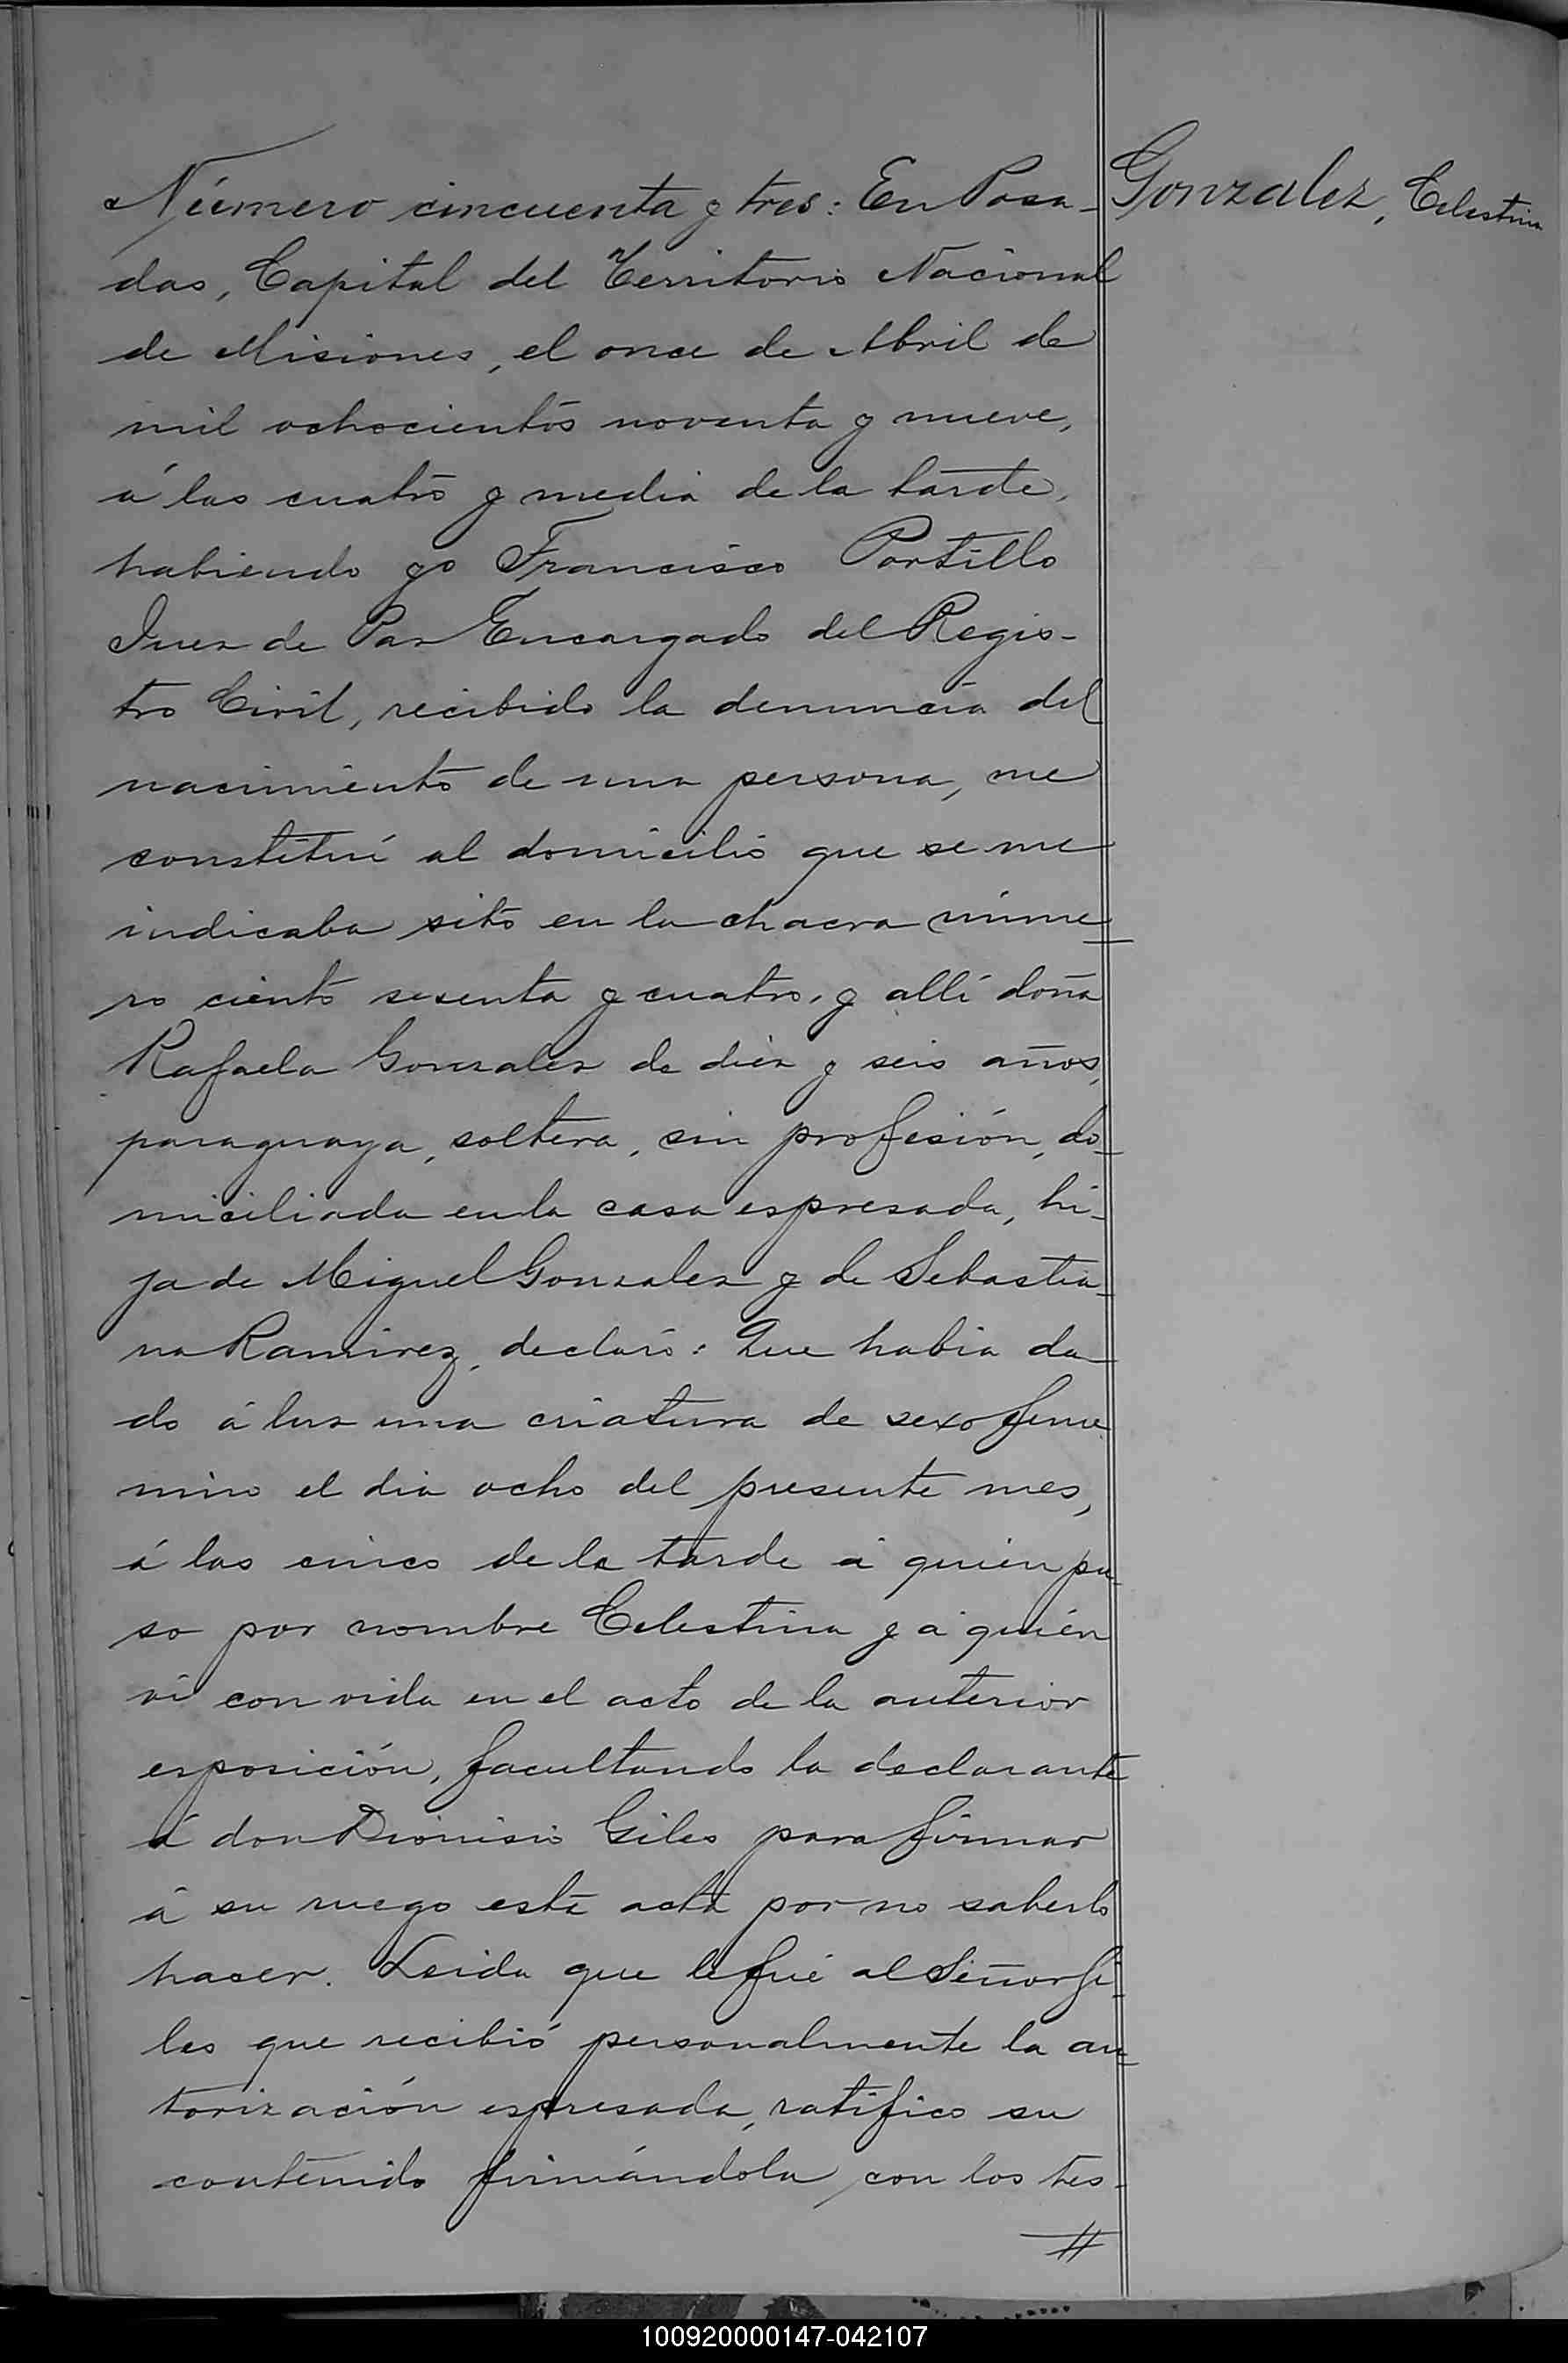 Número cincuenta y tres: En Posa-
Gonzalez, Celestina
das, Capital del Territorio Nacional
de Misiones, el once de Abril de
mil ochocientos noventa y nueve,
á las cuatro y media de la tarde,
habiendo yo Francisco Portillo
Juez de Paz Encargado del Regis-
tro Civil, recibido la denuncia del
nacimiento de una persona, me
constituí al domicilio que se me
indicaba sito en la chacra núme-
ro ciento sesenta y cuatro, y allí doña
Rafaela Gonzalez de diez y seis años,
paraguaya, soltera, sin profesión, do-
miciliada en la casa espresada, hi-
ja de Miguel Gonzalez y de Sebastia-
na Ramirez, declaró: Que habia da-
do á luz una criatura de sexo feme
nino el dia ocho del presente mes,
á las cinco de la tarde á quien pu-
so por nombre Celestina y á quién
ví con vida en el acto de la anterior
esposición, facultando la declarante
á don Dionisio Giles para firmar
á su ruego esta acta por no saberlo
hacer. Leida que le fué al Señor Gi-
les que recibió personalmente la au-
torización espresada, ratifico su
contenido firmándola con los tes-
//
100920000147-042107